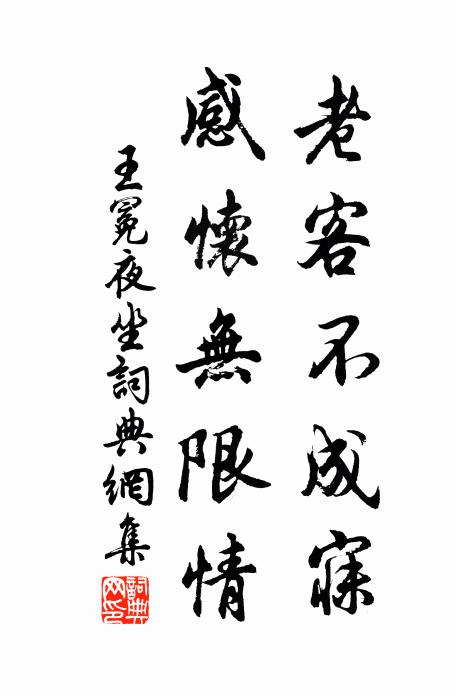 老客不成寐
感懷無限情
王冕夜坐詞典網集
詞典網印